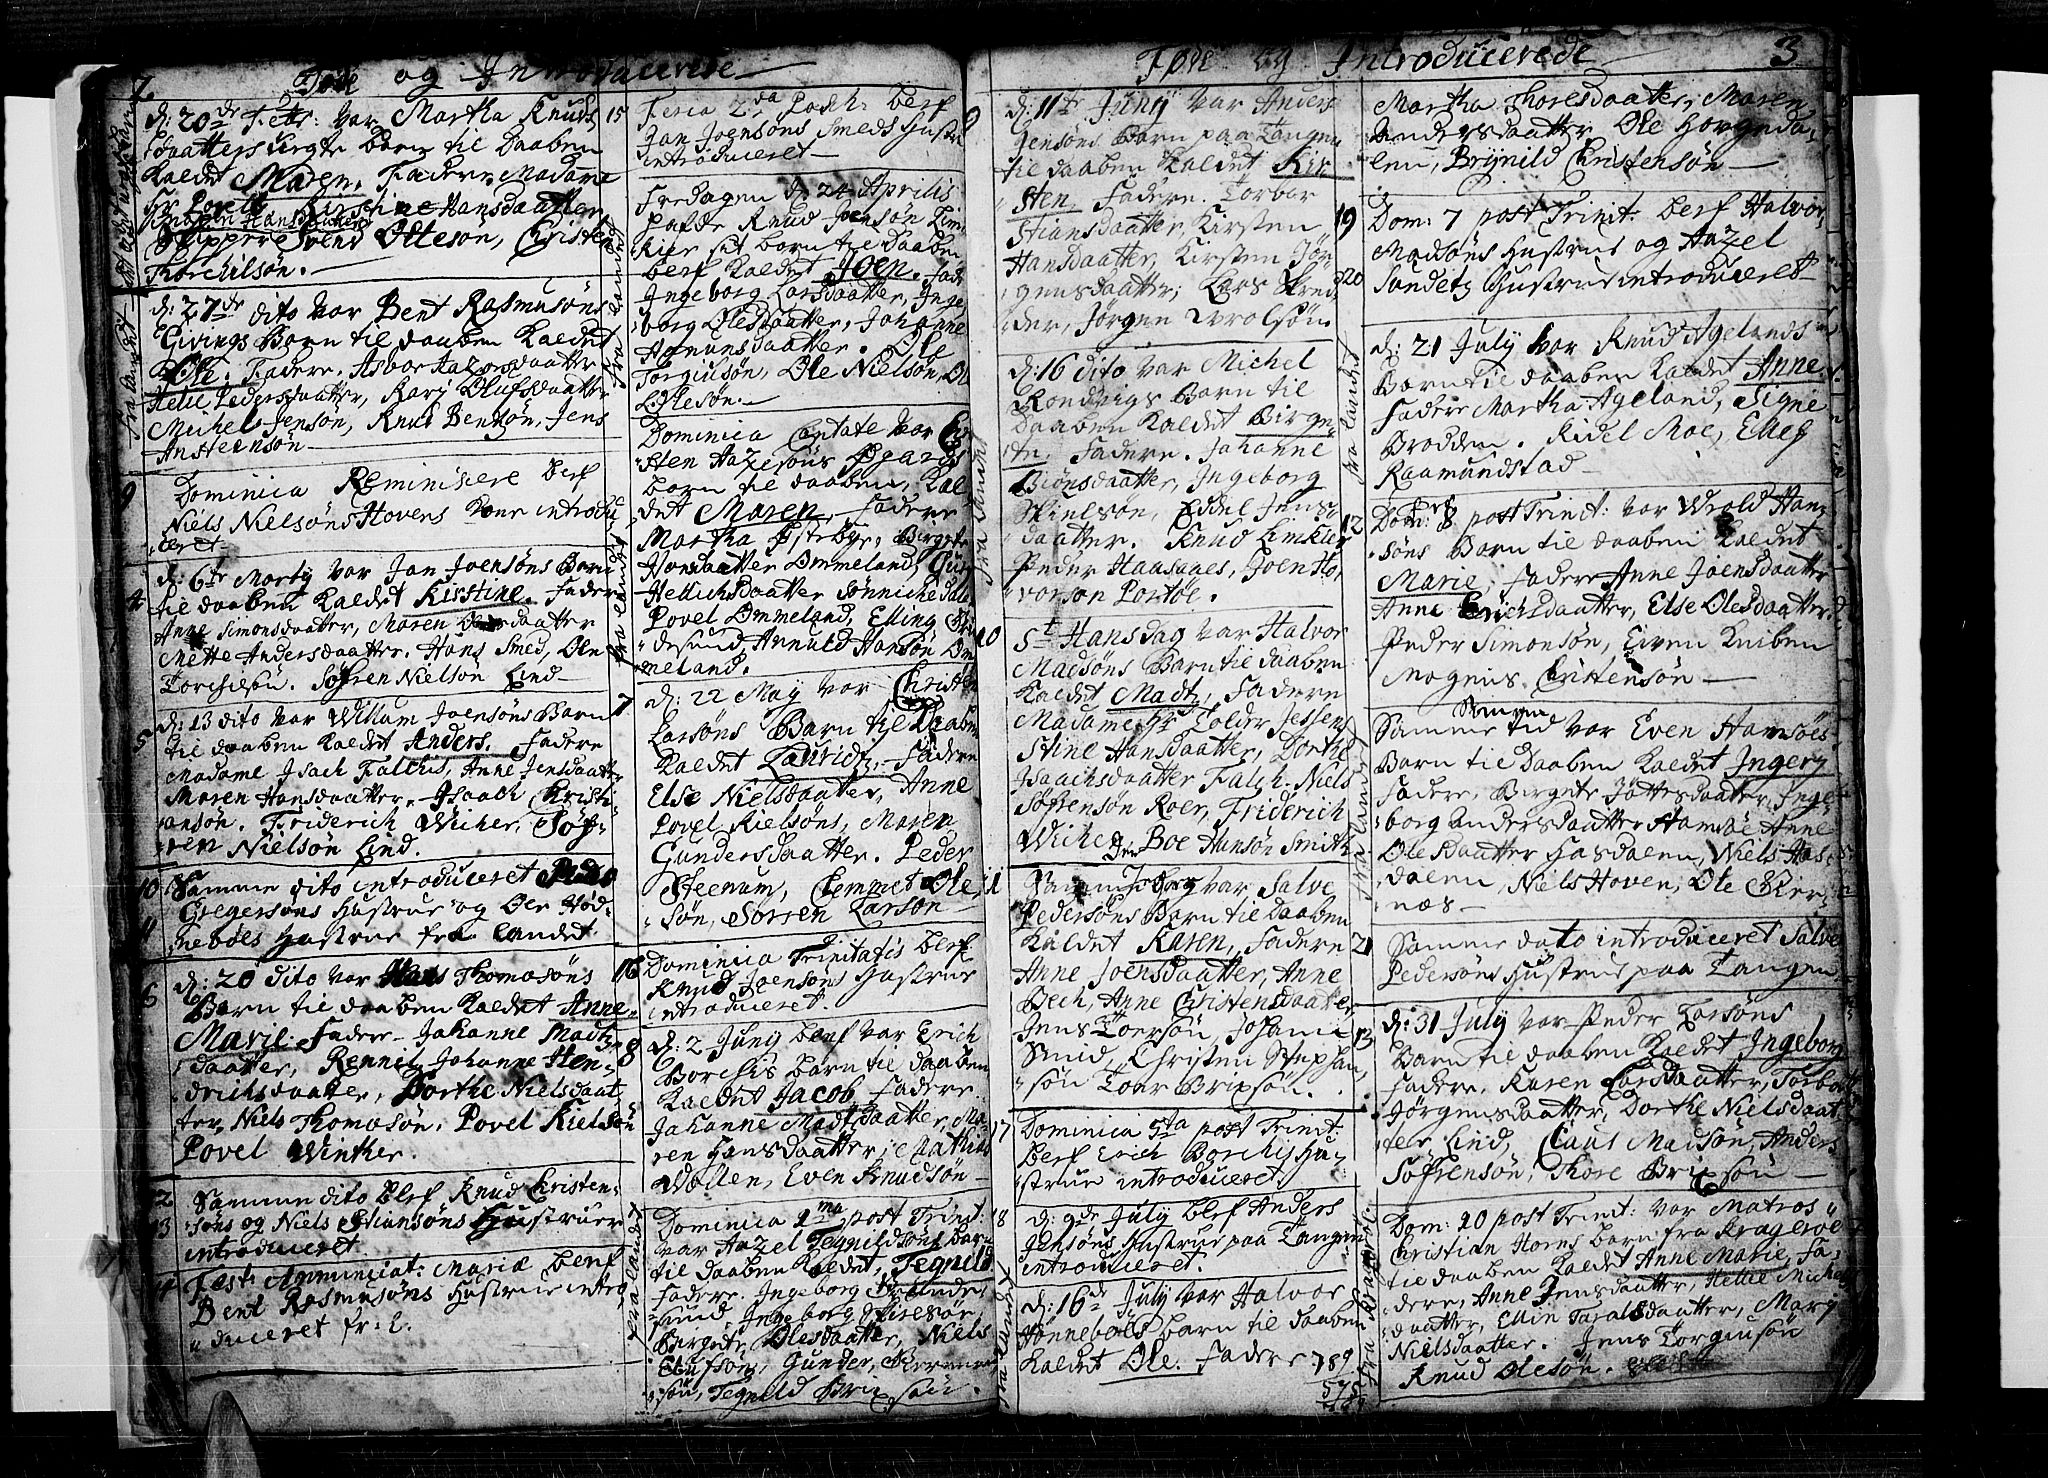 2. Føde og Introducerede
d: 20de Febr: var Martha Knuds
daatters uægte Barn til Daaben
Kaldet Maren. Faddere Madame
Maren Hansdaatter
Skipper Svend Ottesøn, Christen
Thorchilsøn.
d: 27de dito var Bent Rasmusøns
Givings Barn til daaben Kaldet
Ole. Faddere. Asbor Aazersdaatter
Helie Pedersdaatter, Karj Olufsdaatter
Michel Jensøn, Knud Bentsøn, Jens
Anstensøn
9 Dominica Reminisere blef
Niels Nielsøns Hovens Kone introdu
ceret
4 d: 6te Martij var Jan Joensøns Barn
til daaben Kaldet Kirstine. Faddere
Anne Simonsdaatter, Maren daatter
Mette Andersdaatter. Hans Smed, Ole
Torchelsøn. Søfren Nielsøn Lind
5 d: 13 dito var Willum Joensøns Barn
til daaben Kaldet Anders. Faddere
Madame Isach Falchs, Anne Jensdaatter
Maren Hansdaatter. Isaach Christi
ansøn. Friderich Wicher, Søf
ren Nielsøn Lind.
10 Samme dito introduceret Peder
Gregersøns Hustrue og Ole Hød
11 nebøes Hustrue fra landet
6 d: 20 dito var Hans Thomasøns
Barn til daaben Kaldet Anne
Marie. Faddere Johanne Madtz
daatter, Rennei, Johanne Hen
drichsdaatter, Dorthe Nielsdaat
ter, Niels Thomasøn, Povel Nielsøn
Povel Winther.
12 Samme dito blef Knud Christen
13 søns og Niels Stiansøns Hustruer
introduceret
14 Fest: Annunciat: Mariæ blef
Bent Rasmusøns Hustrue intro
duceret fr: l.
15 Feria 2da Pasch: blef
Jan Joensøns Smeds Hustru
introduceret
Fredagen d 24 Aprilis
hafde Knud Joensøn Lim
kier sit barn til daaben
blef Kaldet Joen. Fadd
Ingeborg Larsdaatter, Inge
borg Olesdaatter, Johanne
Hamunsdaatter. Ole
Torgiusøn, Ole Nielsøn, Ol
Olesøn.
Dominica Cantate var Chri
sten Aazersøns Øgards
barn til daaben, Kal
det Maren, Faddere
Martha Østebye, Birgete
Hansdaatter Ommeland, Gun
Hellichsdaatter Sønniche
Povel Ommeland, Elling
desund, Annuld Hansøn Om
meland.
7 d: 22 May var Christen
Larsøns Barn til Daaben
Kaldet Lauritz. Faddere
Else Nielsdaatter, Anne
Povel Nielsøns, Maren
Gundersdaatter. Peder
Steenum, Clemmet Ole
søn, Sørren Larsøn
16 Dominica Trinitatis blef
Knud Joensøns Hustrue
introduceret
8 d: 2 Junij blef var Erich
Borchis barn til daaben
Kaldet Jacob, Faddere
Johanne Madtzdaatter, Ma
ren Hansdaatter, Mathis
Wollen, Even Knudsøn
Dominica 2da post Trinit:
var Aazel Tegnildsøns barn
til daaben Kaldet, Tegnild
Faddere. Ingeborg
sund, Ingeborg
Birgete Olesdaatter, Niels
Olufsøn, Gunder
søn, Tegnild Brixsøn.
Føde og Introducerede 3
9 d: 11te Junij var Anders
Jensøns Barn paa Tangen
til daaben Kaldet Kir
sten. Faddere. Torbor
Stiansdaatter, Kirsten
Hansdaatter, Kirsten Jør
gensdaatter; Lars Skred
der, Jørgen Wrolsøn.
d: 16 dito var Michel
Rondvigs Barn til
Daaben Kaldet Birge
te, Faddere. Johanne
Biønsdaatter, Ingeborg
Nielsøn, Eddel Jens
daatter. Knud Limkier
Peder Haasages, Joen Ho
vorsøn Portøe.
10 St Hansdag var Halvor
Madsøns Barn til daaben
Kaldet Madtz, Faddere
Madame Hr Tolder Jessens
Stine Hansdaatter, Dorthe
Isaachsdaatter Falch. Niels
Søfrensøn Roer, Friderich
Wiche Boe Hansøn Smith
11 Samme dag var Salve
Pedersøns Barn til Daaben
Kaldet Karen, Faddere
Anne Joensdaatter, Anne
Bech, Anne Christensdaatter
Jens Toersøn, Johan
Smid, Christen Stephan
søn Toar Brixsøn.
17 Dominica 5ta post Trinit:
blef Erich Borchis Hu
strue introduceret.
18 d: 9de July blef Anders
Jensøns Hustrue paa Tangen
introduceret.
d: 16de July var Halvor
Hønnebøls barn til daaben
Kaldet Ole. Faddere
789
Martha Thoresdaatter, Maren
Andersdaatter Ole Horgeda
len, Brynild Christensøn
19 Dom: 7 post Trinit: blef Halvor
Madsøns Hustrue og Aazel
20 Sundetz Hustrue introduceret
d: 21 July var Knud Agelands
Barn til daaben Kaldet Anne.
Faddere Martha Ageland, Signe
Brodden. Kidel Moe, Ellef
Raamundstad
12 Dom: 8 post Trinit: var Wrold Han
søns Barn til daaben Kaldet
Marie; Faddere Anne Joensdaatter
Anne Erichsdaatter, Else Olesdaatter
Peder Simonsøn, Even Kniben
Mogens Christensøn
Samme tid var Even Hamsøes
Barn til Daaben Kaldet Ingerj
Faddere, Birgete Jøttesdaatter, Inge
borg Andersdaatter Hamsøe Anne
Olesdaatter Hasdalen, Niels Has
dalen, Niels Hoven, Ole
næs
21 Samme dato introduceret Salve
Pedersøns Hustrue paa Tangen
13 d: 31 July var Peder Larsøns
Barn til daaben Kaldet Ingeborg
Faddere, Karen Larsdaatter, Torbor
Jørgensdaatter, Dorthe Nielsdaat
ter Lind, Claus Madsøn, Anders
Søfrensøn, Thore Brixsøn
Dom: 10 post Trinit: var Matros
Christian Horns barn fra Kragerøe
til daaben Kaldet Anne Marie, Fad
dere, Anne Jensdaatter, Hellie Michels
daatter, Ellin Taralsdaatter, Marj
Nielsdaatter. Jens Torgiusøn
Knud Olesøn.
fra landet
fra landet
fra landet
fra landet
fra landet
fra landet
fra Kragerøe